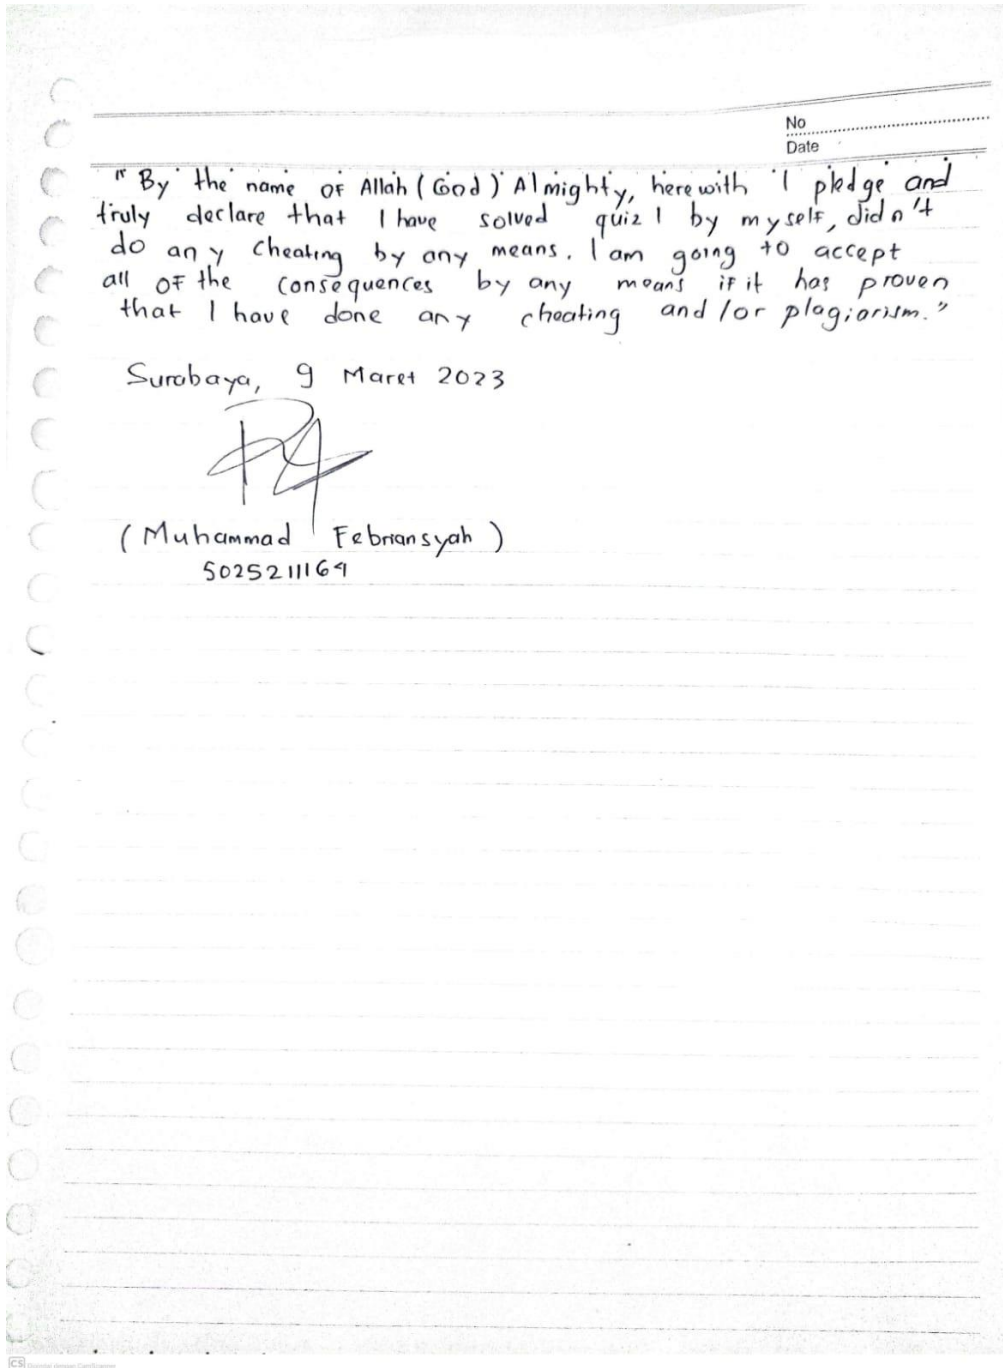 No
Date
"By the name of Allah (God) Almighty, herewith I pledge and
truly declare that I have solved quiz 1 by myself, didn't
do any cheating by any means. I am going to accept
all of the consequences by any means if it has proven
that I have done any cheating and/or plagiarism."
Surabaya, 9 Maret 2023
(Muhammad Febriansyah)
5025211164
CS Dipindai dengan CamScanner